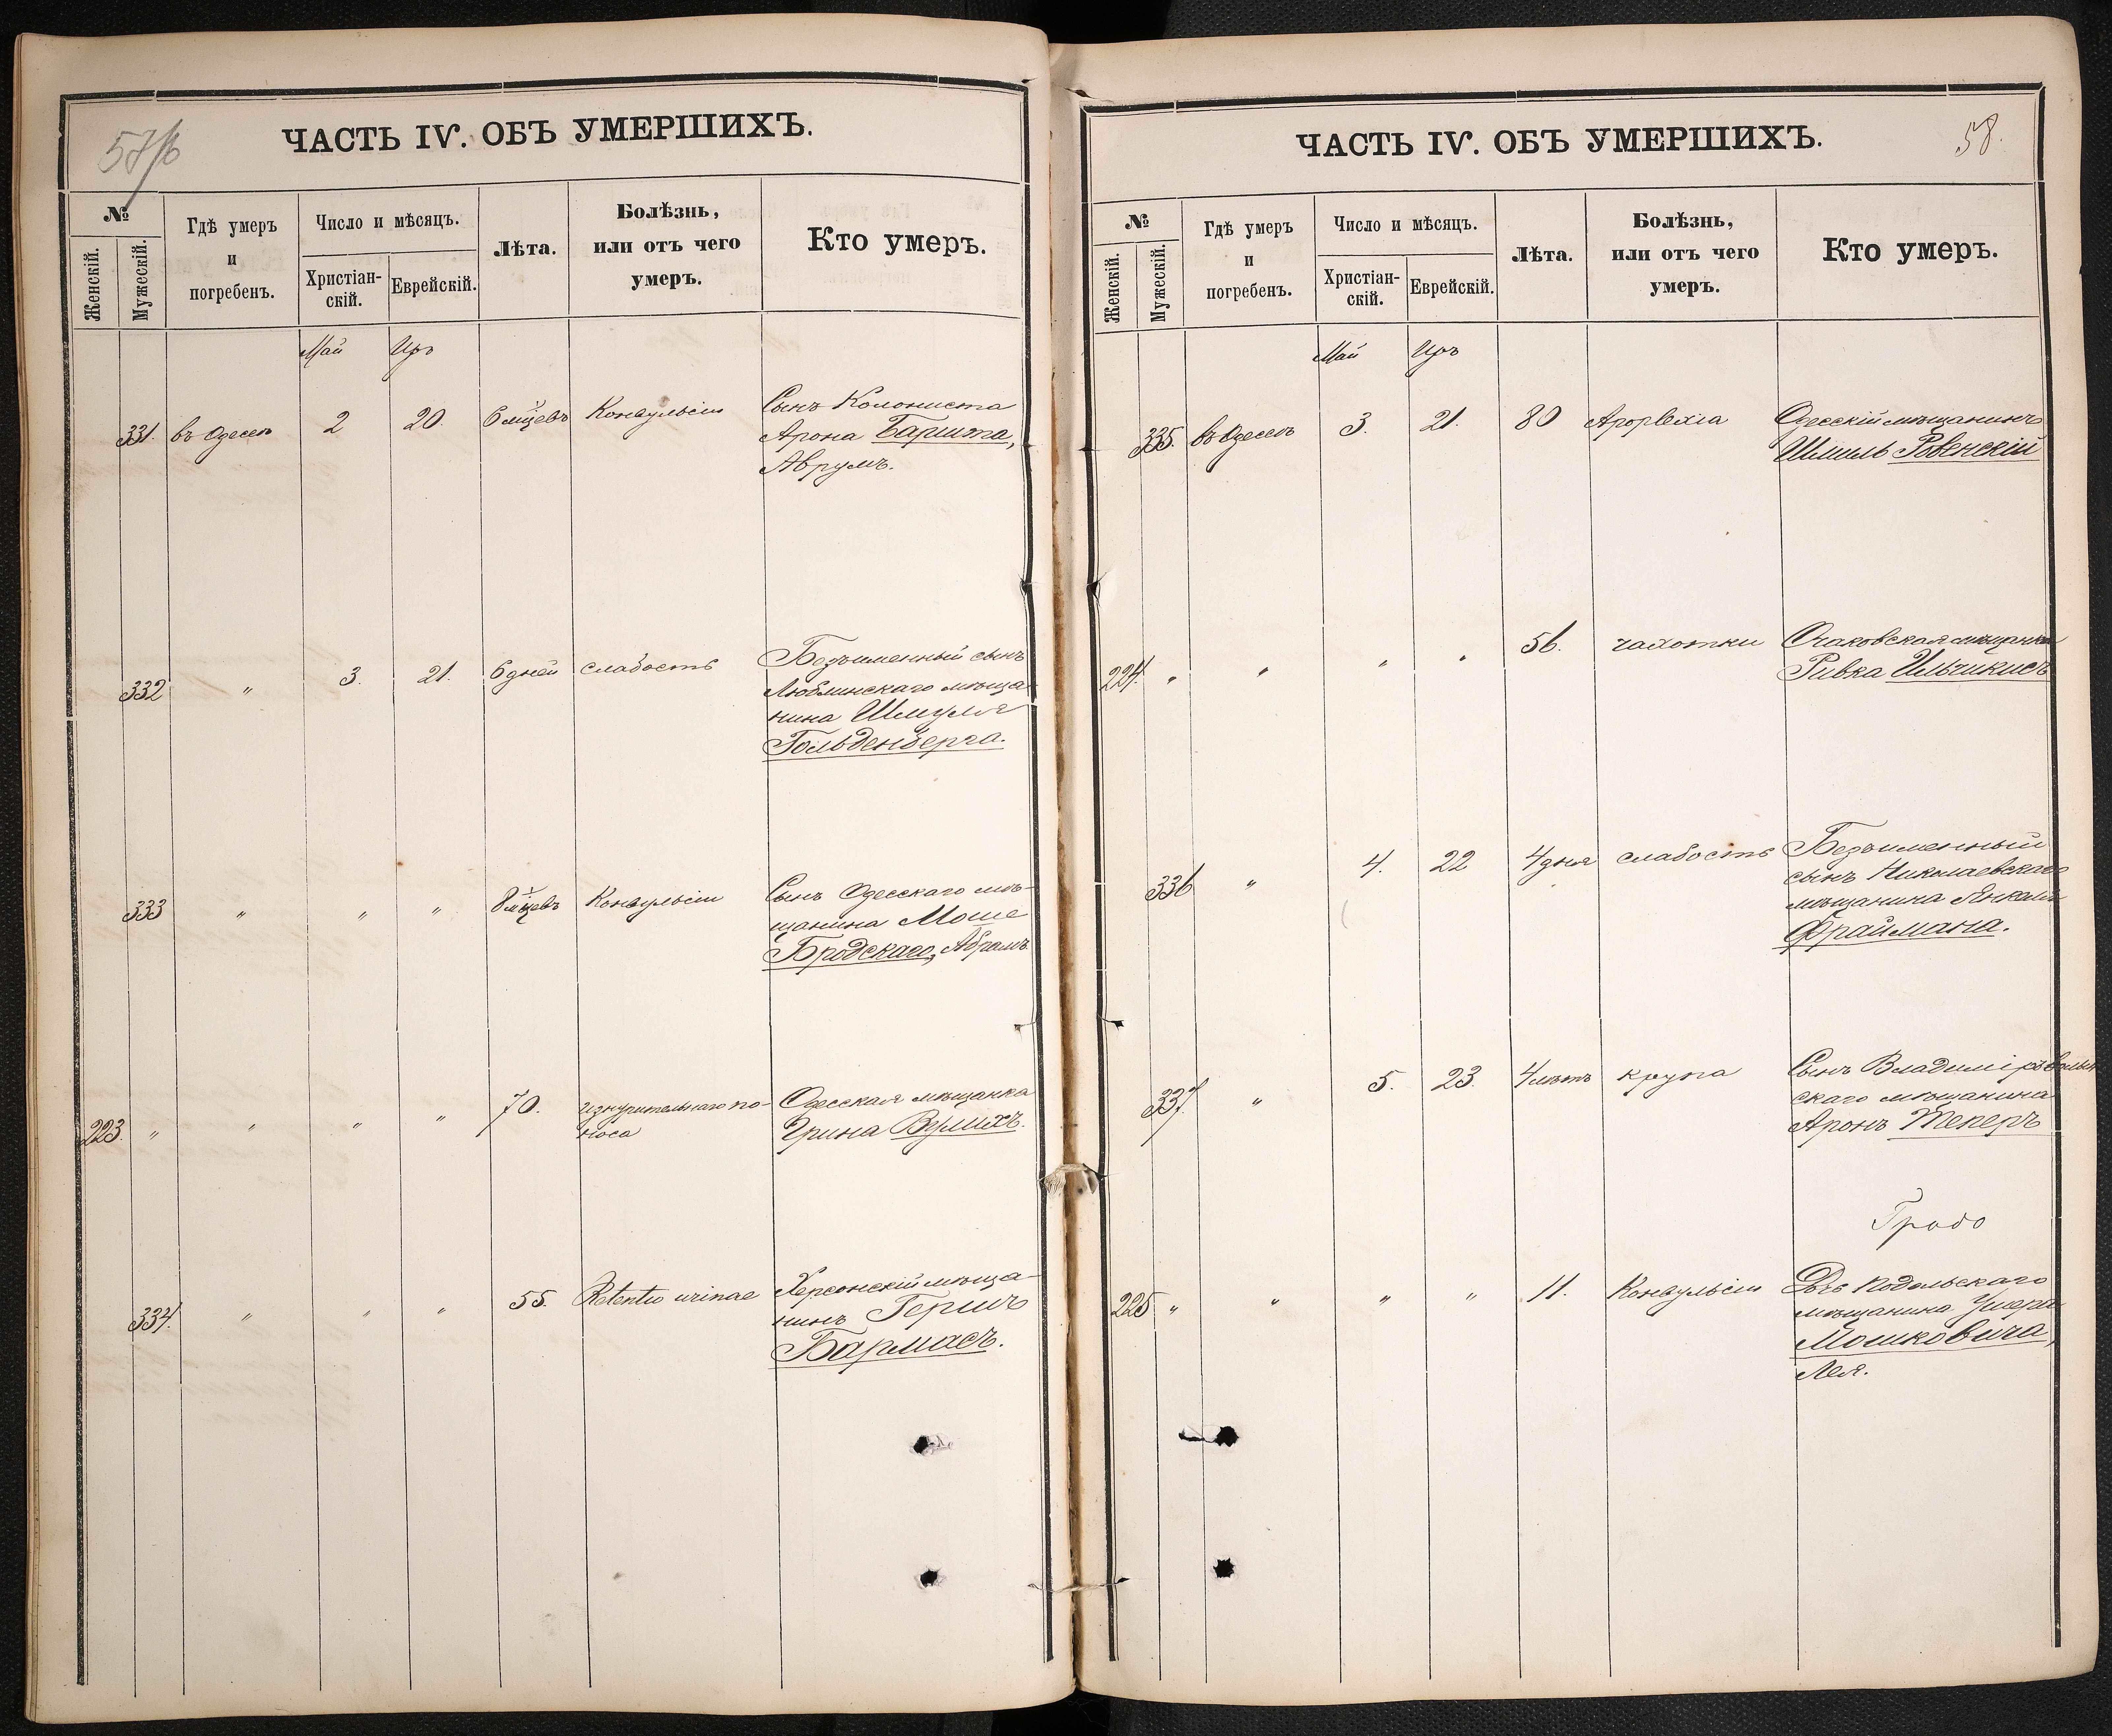 ЧАСТЬ IV. ОБЪ УМЕРШИХЪ.
№
Женскій.
Мужескій.
Гдѣ умеръ
и
погребенъ.
Число и мѣсяцъ.
Христіан-
скій.
Еврейскій.
Лѣта.
Болѣзнь,
или отъ чего
умеръ.
Кто умеръ.
Май Иръ
331. въ Одессѣ 2 20. 6 мцевъ Конвульсіи Сынъ Колониста
Арона Баришта,
Аврумъ.
332 " 3. 21. 6 дней слабость Безъименный сынъ
Люблинскаго мѣща-
нина Шмуля
Гольденберга.
333 " " " 8 мцевъ Конвульсіи Сынъ Одесскаго мѣ-
щанина Моше
Бродскаго, Абрамъ
223. " " " " 70. изнурительнаго по- Одесская мѣщанка
носа
Грина Вулихъ.
334. " " " 55. Retentio urinae Херсонскій мѣща-
нинъ Гершъ
Бармасъ.
ЧАСТЬ IV. ОБЪ УМЕРШИХЪ.
58.
№
Женскій.
Мужескій.
Гдѣ умеръ
и
погребенъ.
Число и мѣсяцъ.
Христіан-
скій.
Еврейскій.
Лѣта.
Болѣзнь,
или отъ чего
умеръ.
Кто умеръ.
Май Иръ
335. въ Одессѣ 3. 21. 80 Одесскій мѣщанинъ
Шмиль Ровенскій
224. " " " " 56. чахотки Очаковская мѣщанка
Ривка
336 " 4. 22 4 дня слабость Безъименный
сынъ Николаевскаго
мѣщанина Янкеля
Фраймана.
337. " 5. 23. 4 лѣтъ крупа Сынъ Владиміръ Волын
скаго мѣщанина
Аронъ Текеръ
225. " " " " 11. Конвульсіи Дчь Подольскаго
мѣщанина Ушера
Мошковича,
Лея.